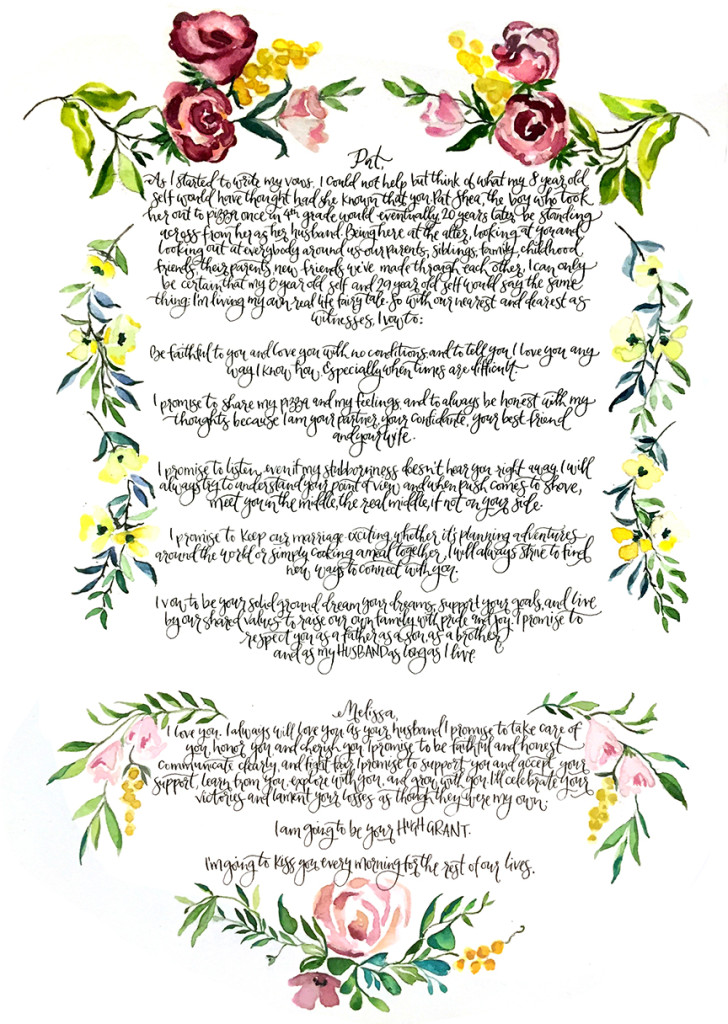 Pat,
As I started to write my vows, I could not help but think of what my 8 year old
self would have thought had she known that you, Pat Shea, the boy who took
her out to pizza once in 4th grade would eventually 20 years later be standing
across from her as her husband. Being here at the alter, looking at you and
looking out at everybody around us-our parents, siblings, family, childhood
friends, their parents, new friends we've made through each other, I can only
be certain that my 8 year old self and 29 year old self would say the same
thing: I'm living my own real life fairy tale. So with our nearest and dearest as
witnesses, I vow to:
Be faithful to you and love you with no conditions, and to tell you I love you any
way I know how. Especially when times are difficult.
I promise to share my pizza and my feelings, and to always be honest with my
thoughts because I am your partner, your confidante, your best friend
and your wife.
I promise to listen, even if my stubbornness doesn't hear you right away. I will
always try to understand your point of view and when push comes to shove,
meet you in the middle, the real middle, if not on your side.
I promise to keep our marriage exciting whether it's planning adventures
around the world or simply cooking a meal together, I will always strive to find
new ways to connect with you.
I vow to be your solid ground, dream your dreams, support your goals, and live
by our shared values to raise our own family with pride and joy. I promise to
respect you as a father as a son as a brother
and as my HUSBAND as long as I live.
Melissa,
I love you. I always will love you. As your husband I promise to take care of
you, honor you and cherish you. I promise to be faithful and honest,
communicate clearly, and fight fair. I promise to support you and accept your
support, learn from you, explore with you, and grow with you. I'll celebrate your
victories and lament your losses as though they were my own.
I am going to be your HUGH GRANT.
I'm going to kiss you every morning for the rest of our lives.